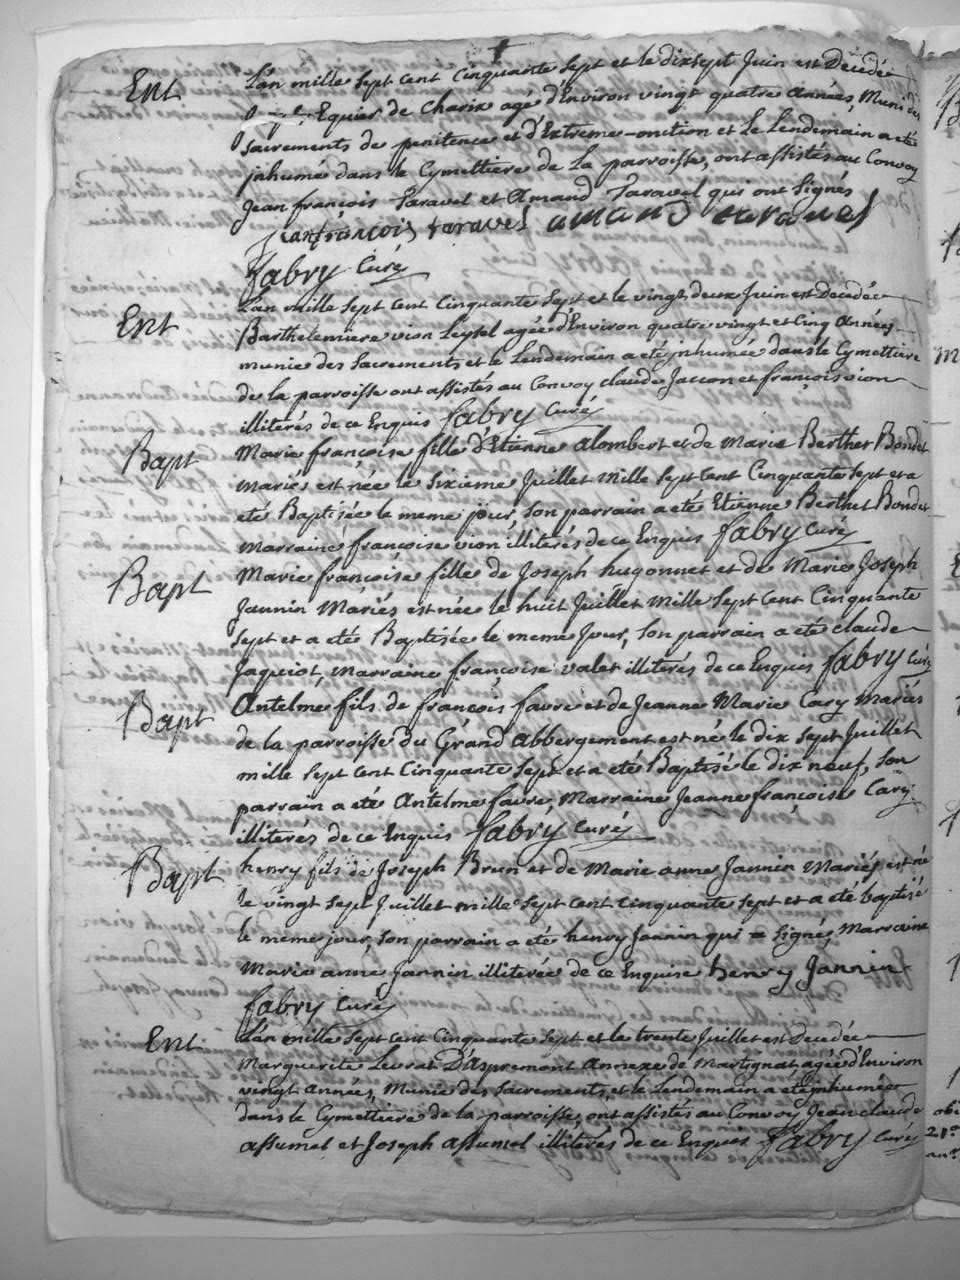 Ent
L'an mille sept cent cinquante sept et le dixsept Juin est Decedé
Equier de Charix agé d'Environ vingt quatre années, Muni des
Sacrements de penitence et d'Extreme-onction et le Lendemain a eté
jnhumé dans le Cymettiere de La parroisse, ont assistés au Convoy
Jean françois Taravel et Amand Taravel qui ont Signés
jeanfrancois taravel amand taravel
fabry Curé
Ent
L'an mille Sept Cent Cinquante Sept et le vingt deux Juin est Decedée
Barthelemiere vion Leytel agée d'Environ quatre vingt et Cinq Années
munie des Sacrements et le Lendemain a eté jnhumée dans le Cymettiere
de la parroisse ont assistés au Convoy claude Jaccon et françois vion
illiterés de ce Enquis fabry Curé
Bapt
Marie françoise fille d'Etienne alombert et de Marie Berthet Bondet
Mariés est née le Sixieme Juillet Mille Sept Cent Cinquante Sept et a
eté Baptisée le meme jour, Son parrain a eté Etienne Berthet Bondet
Marraine françoise vion illiterés de ce Enquis fabry Curé
Bapt
Marie françoise fille de Joseph hugonnet et de Marie Joseph
Jannin Mariés est née le huit Juillet Mille Sept Cent Cinquante
Sept et a eté Baptisée le meme Jour, Son parrain a eté claude
Jaquiot, Marraine françoise valet illiterés de ce Enquis fabry Curé
Bapt
Antelme fils de françois favre et de Jeanne Marie Cary Mariés
de la parroisse du Grand abbergement est né le dix Sept Juillet
mille Sept Cent Cinquante Sept et a eté Baptisé le dix neuf, Son
parrain a eté Antelme favre, Marraine Jeanne françoise Cary
illiterés de ce Enquis fabry Curé
Bapt
henry fils de Joseph Brun et de Marie anne Jannin Mariés est né
le vingt Sept Juillet mille Sept Cent Cinquante Sept et a eté baptisé
le meme jour, Son parrain a eté henry Jannin qui a Signé, Marraine
Marie anne Jannin illiterée de ce Enquise henry Jannin
fabry Curé
Ent
L'an mille Sept Cent Cinquante Sept et le trente Juillet est Decedée
Marguerite Levrat D'aspremont Annexe de Martignat agée d'Environ
vingt Année, Munie des Sacrements, et le Lendemain a eté jnhumée
dans le Cymettiere de la parroisse, ont assistés au Convoy Jean claude
assumel et Joseph assumel illiterés de ce Enquis fabry Curé